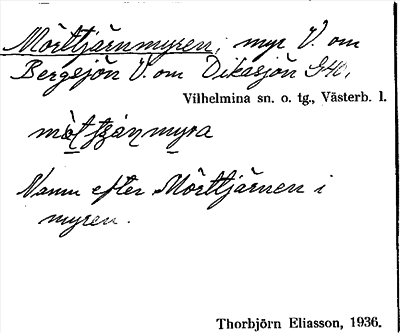 Mörttjärnmyren, myr V. om
Bergsjön V. om Dikasjön
Vilhelmina sn. o. tg., Västerb. l.
Namn efter Mörttjärnen i
myren.
Thorbjörn Eliasson, 1936.